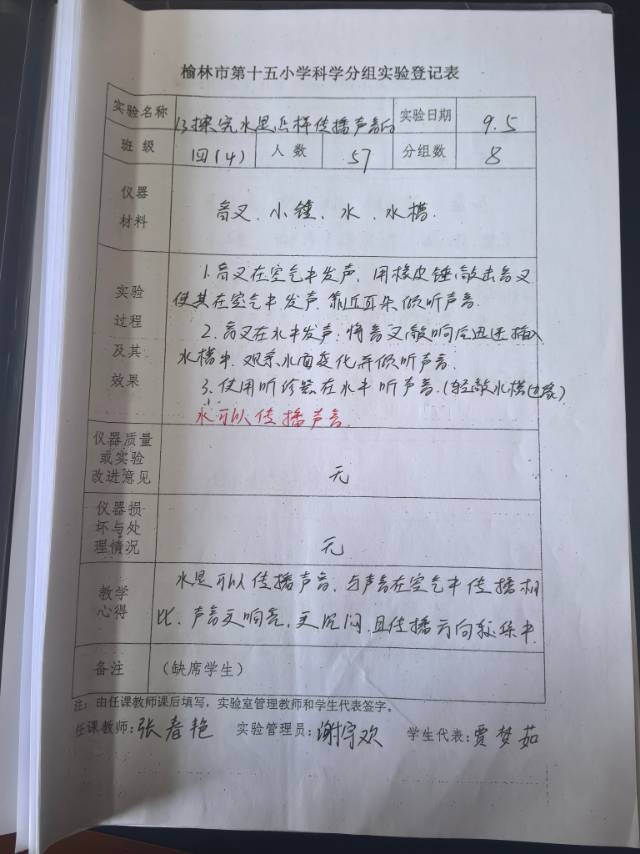 榆林市第十五小学科学分组实验登记表
实验名称 探究水是怎样传播声音的 实验日期 9.5
班级 四(4) 人数 57 分组数 8
仪器
材料
音叉、小锤、水、水槽.
实验
过程
及其
效果
1.音叉在空气中发声.用橡皮锤敲击音叉
使其在空气中发声.靠近耳朵倾听声音.
2.音叉在水中发声:将音叉敲响后迅速插入
水槽中.观察水面变化并倾听声音.
3.使用听诊器在水中听声音.(轻敲水槽边缘)
水可以传播声音.
仪器质量
或实验
改进意见
无
仪器损
坏与处
理情况
无
教学
心得
水是可以传播声音.与声音在空气中传播相
比.声音更响亮,更沉闷.且传播方向较集中.
备注 (缺席学生)
注:由任课教师课后填写,实验室管理教师和学生代表签字。
任课教师:张春艳 实验管理员:谢宇欢 学生代表:贾梦茹